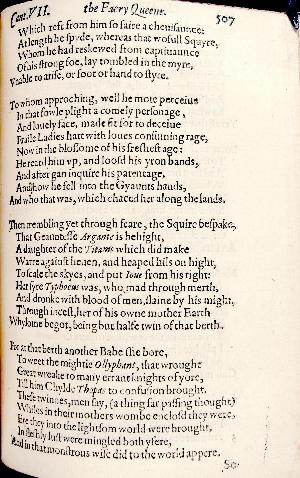 Cant. VII. the Faery Queene. 507
Which reft from him so faire a cheuisaunce:
At length he spyde, whereas that wofull Squyre,
Whom he had reskewed from captiuaunce
Of his strong foe, lay tombled in the myre,
Vnable to arise, or foot or hand to styre.
To whom approching, well he mote perceiue
In that fowle plight a comely personage,
And louely face, made fit for to deceiue
Fraile Ladies hart with loues consuming rage,
Now in the blossome of his freshest age:
He reard him vp, and loosd his yron bands,
And after gan inquire his parentage,
And how he fell into the Gyaunts hands,
And who that was, which chaced her along the lands.
Then trembling yet through feare, the Squire bespake,
That Geauntesse Argante is behight,
A daughter of the Titans which did make
Warre against heuen, and heaped hils on hight,
To scale the skyes, and put Ioue from his right:
Her syre Typhoeus was, who mad through merth,
And dronke with blood of men, slaine by his might,
Through incest, her of his owne mother Earth
Whylome begot, being but halfe twin of that berth.
For at that berth another Babe she bore,
To weet the mightie Ollyphant, that wrought
Great wreake to many errant knights of yore,
Till him Chylde Thopas to confusion brought.
These twinnes, men say, (a thing far passing thought)
Whiles in their mothers wombe enclosd they were,
Ere they into the lightsom world were brought,
In fleshly lust were mingled both yfere,
And in that monstrous wise did to the world appere.
So